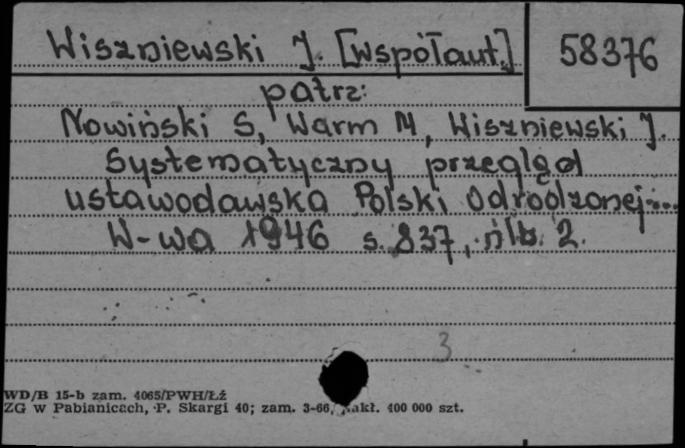 Wiszniewski J. [współaut.] 58376
patrz:
Nowiński S, Warm M, Wiszniewski J.
Systematyczny przegląd
ustawodawska Polski Odrodzonej...
W-wa 1946 s. 837, nlb. 2.
3
WD/B 15-b zam. 4065/PWH/Łź
ZG w Pabianicach, P. Skargi 40; zam. 3-66, nakł. 400 000 szt.